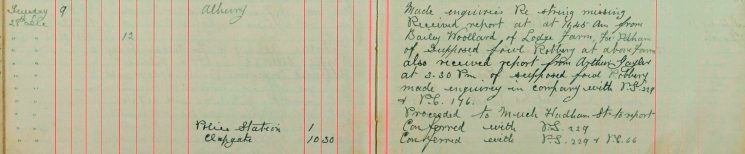 Tuesday 9 Albury Made enquiries Re string missing
Received report at at 11,45 Am from
12 Bailey Woollard, of Lodge Farm,
of Supposed fowl Robbery at above farm
also received report from Arthur
at 3-30 Pm. of supposed fowl Robbery
made enquirey in company with P.S. 229
& P.C. 196.
Proceeded to Much Hadham St. to report
Police Station 1 Conferred with P.S. 229
Clapgate 10 30 Conferred with P.S. 229 & P.S. 66